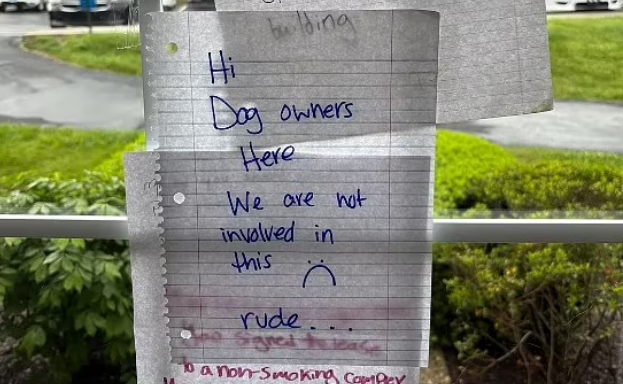 building
Hi
Dog owners
Here
We are not
involved in
this
rude...
who signed the lease
to a non-smoking complex